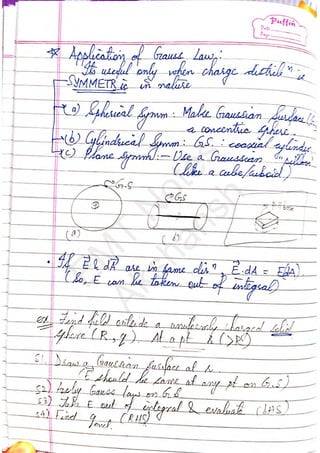 Puffin
Date
Page
Application of Gauss Law:
Its useful only when charge distribⁿ is
SYMMETRIC in nature
(a) Spherical Symm: Make Gaussian Surface (G.S)
a concentric sphere.
(b) Cylindrical Symm: G.S. : coaxial cylinder.
(c) Plane Symm:— Use a Gaussian "pillbox"
(like a cube/cuboid)
G.S
G.S
(a)
(b)
• If E & dA are in same dirⁿ, E·dA = EdA.
(So, E can be taken out of integral)
ex. Find field outside a uniformly charged solid
sphere (R, q). At a pt r (>R)
S1. Draw a Gaussian surface at r.
(E should be same at any pt on G.S)
S2) Apply Gauss law on G.S
S3) Take E out of integral & evaluate (LHS)
S4) Find q encl. (RHS)